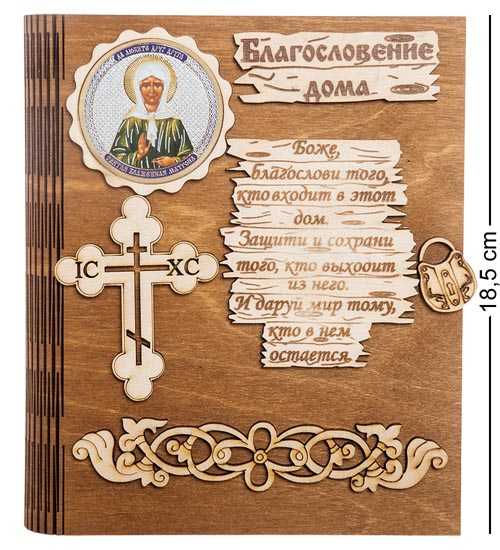 ДА ЛЮБИТЕ ДРУГ ДРУГА
СВЯТАЯ БЛАЖЕННАЯ МАТРОНА
Благословение
дома
Боже,
благослови того,
кто входит в этот
дом.
Защити и сохрани
того, кто выходит
из него.
И даруй мир тому,
кто в нем
остается
IC XC
18,5 cm